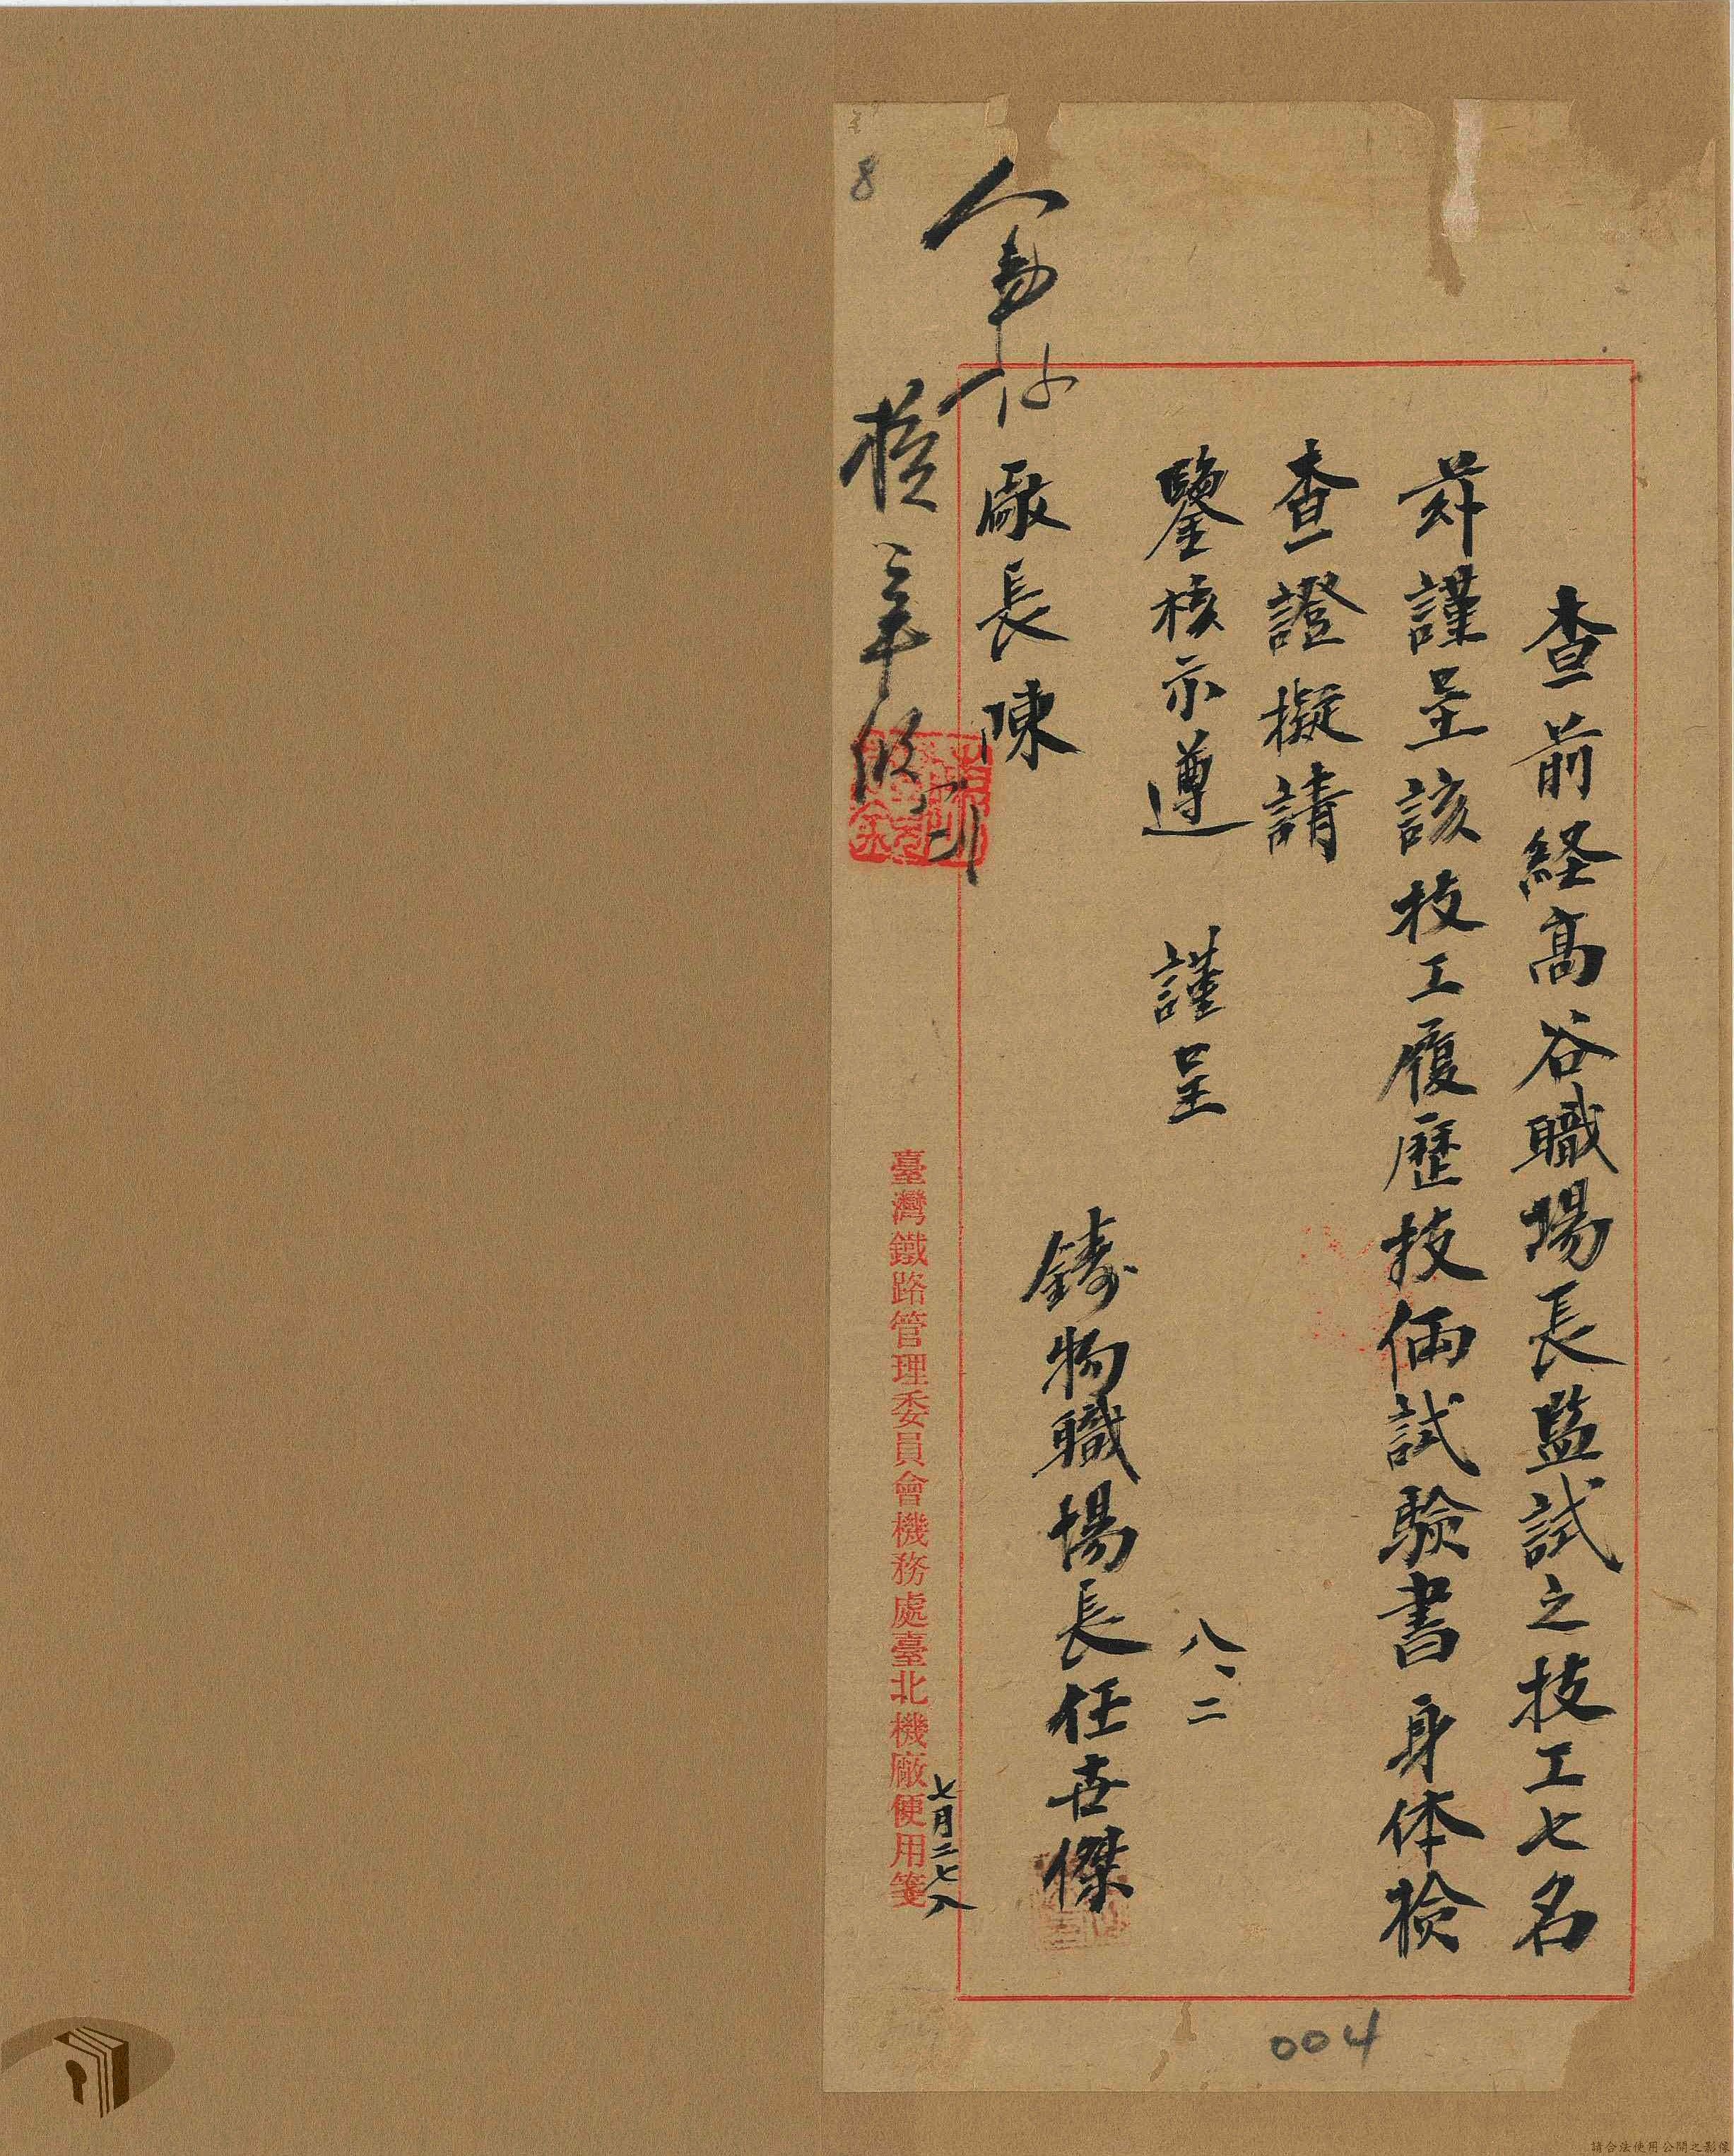 查前経高谷職場長監試之技工七名
茲謹呈該技工履歷技倆試驗書身体檢
查證擬請
鑒核示遵 謹呈
八、二
鑄物職場長任世傑
廠長陳
七月二七入
臺灣鐵路管理委員會機務處臺北機廠便用箋
8
004
請合法使用公開之影像